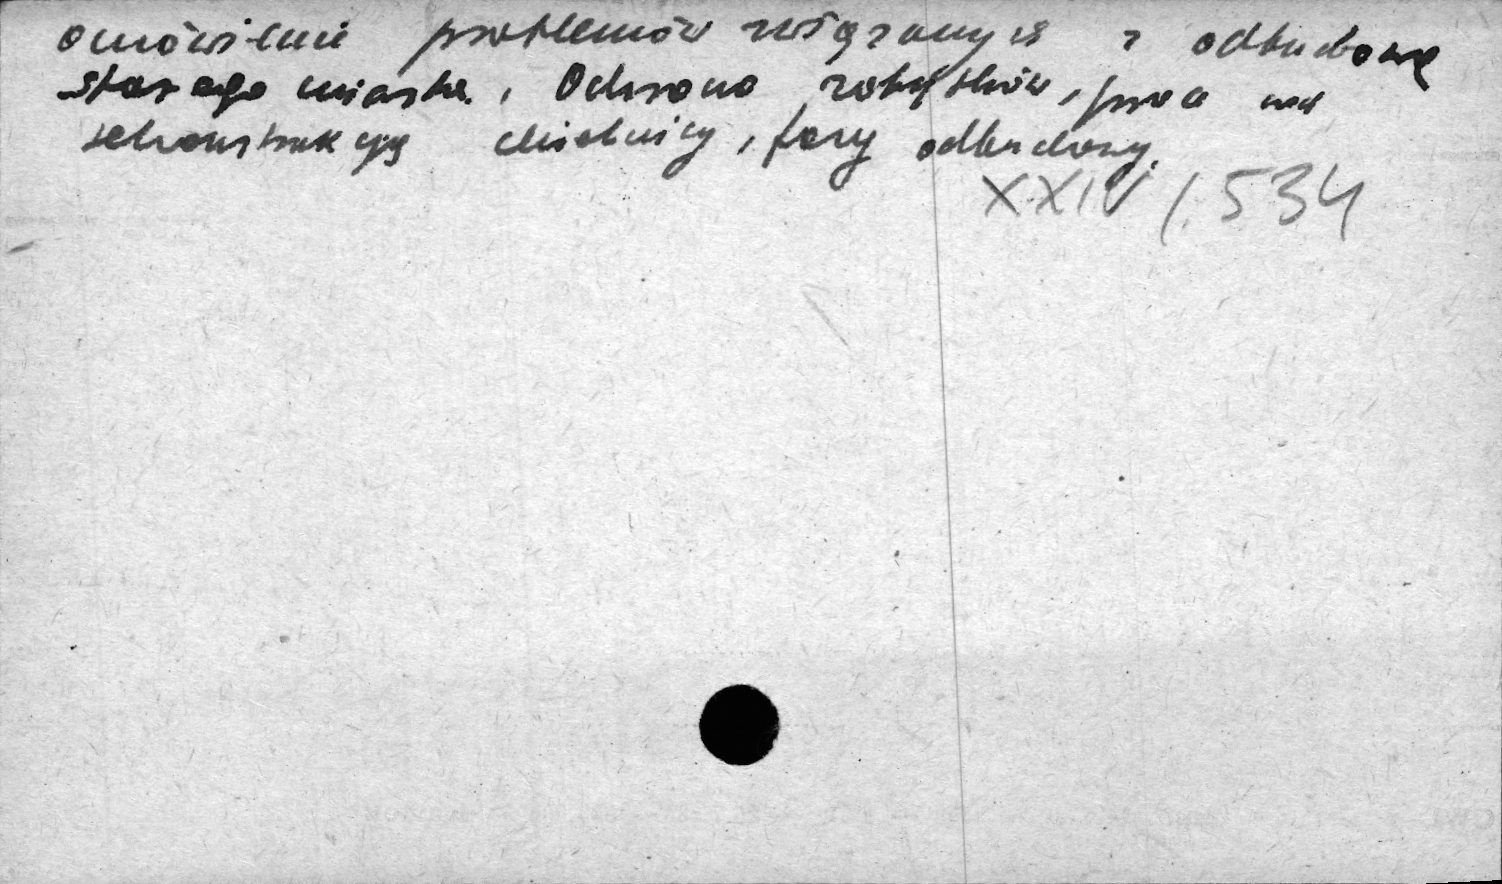 omówienie problemów związanych z odbudową
starego miasta. Ochrona zabytków, praca nad
rekonstrukcją dzielnicy, fazy odbudowy.
XXIV /. 534